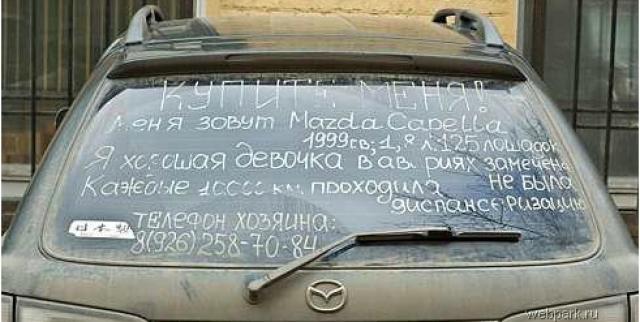 КУПИТЕ МЕНЯ!
Меня зовут Mazda Capella
1999гв; 1,8 л. 125 лошадок
Я хорошая девочка в авариях замечена не была
Каждые 10000 км. проходила диспансеризацию
ТЕЛЕФОН ХОЗЯИНА:
8(926)258-70-84
webpark.ru